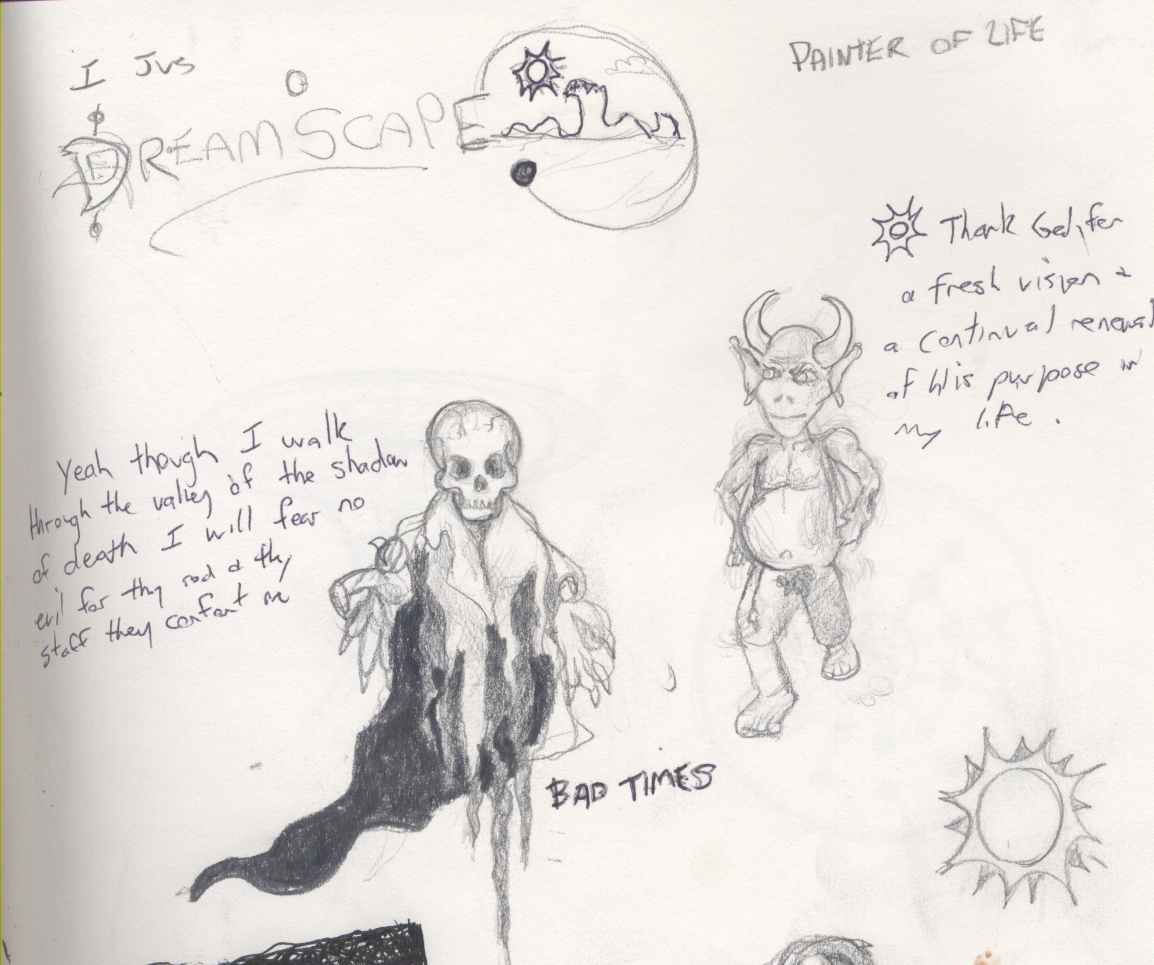 I Jus
DREAMSCAPE
PAINTER OF LIFE
Thank God, for
a fresh vision +
a continual renewal
of His purpose in
my life.
Yeah though I walk
through the valley of the shadow
of death I will fear no
evil for thy rod & thy
staff they comfort me
BAD TIMES